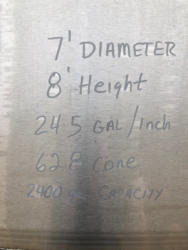 7' DIAMETER
8' Height
24.5 GAL/inch
628 Cone
2400 CAPACITY